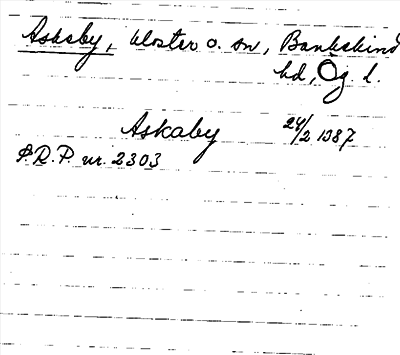 Askeby, kloster o. sn, Bankekind
hd, Ög. l.
Askaby 24/2 1387
S.R.P. nr. 2303